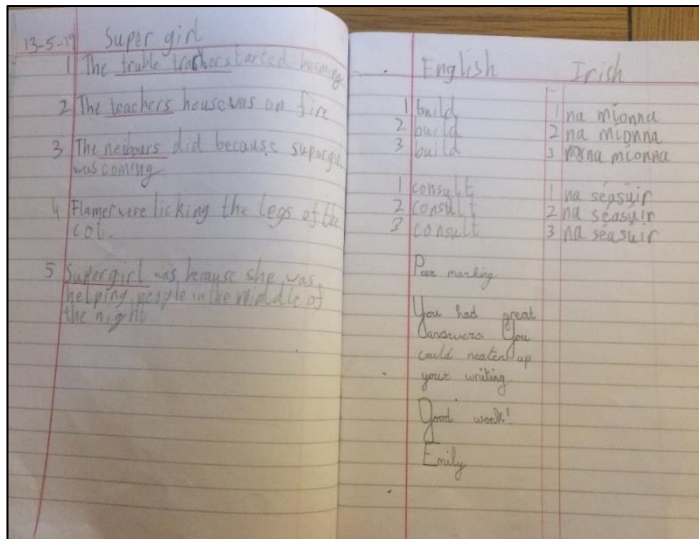 13-5-19 Super girl
1 The truble trackor started booming
2 The teachers house was on fire
3 The neibours did because supergirl
was coming
4 Flames were licking the legs of the
cot.
5 Supergirl was because she was
helping people in the middle of
the night
English Irish
1 build 1 na míonna
2 build 2 na míonna
3 build 3 na míonna
1 consult 1 na séasúir
2 consult 2 na séasuir
3 consult 3 na séasuir
Peer marking
You had great
answers You
could neaten up
your writing
Good work!
Emily